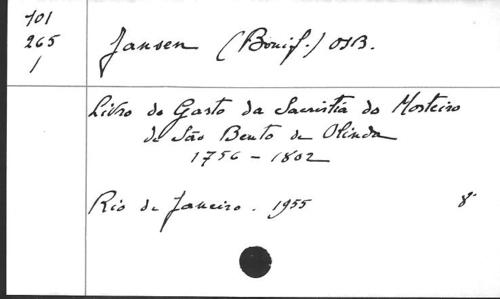 701
265
1
Jansen (Bonif.) OSB.
Livro do Gasto da Sacristia do Mosteiro
de São Bento de Olinda
1756 - 1802
Rio de Janeiro. 1955 8°